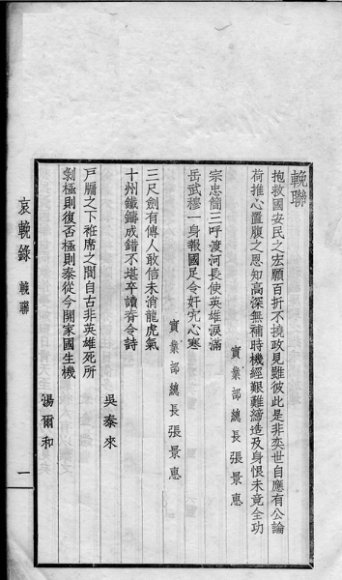 輓聯
抱救國安民之宏願百折不撓政見雖彼此是非奕世自應有公論
荷推心置腹之恩知高深無補時機經艱難締造及身恨未竟全功
實業部總長張景惠
宗忠簡三呼渡河長使英雄淚滿
岳武穆一身報國足令奸宄心寒
實業部總長張景惠
三尺劍有傳人敢信未消龍虎氣
十州鐵鑄成錯不堪卒讀脊令詩
吳泰來
戶牖之下袵席之間自古非英雄死所
剝極則復否極則泰從今開家國生機
湯爾和
哀輓錄 輓聯 一